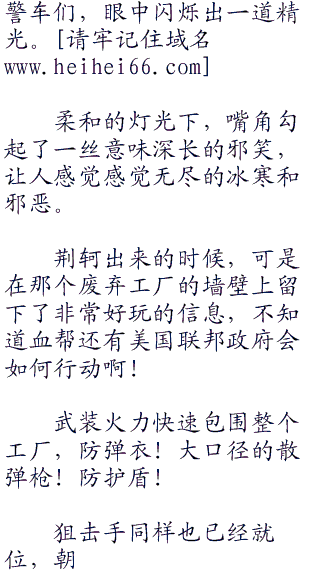 警车们，眼中闪烁出一道精
光。[请牢记住域名
www.heihei66.com]
柔和的灯光下，嘴角勾
起了一丝意味深长的邪笑，
让人感觉感觉无尽的冰寒和
邪恶。
荆轲出来的时候，可是
在那个废弃工厂的墙壁上留
下了非常好玩的信息，不知
道血帮还有美国联邦政府会
如何行动啊！
武装火力快速包围整个
工厂，防弹衣！大口径的散
弹枪！防护盾！
狙击手同样也已经就
位，朝